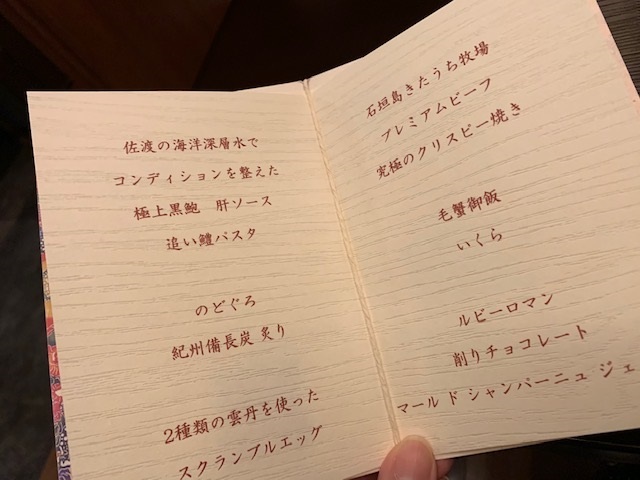 佐渡の海洋深層水で
コンディションを整えた
極上黒鮑 肝ソース
追い鱧パスタ
のどぐろ
紀州備長炭 炙り
2種類の雲丹を使った
スクランブルエッグ
石垣島きたうち牧場
プレミアムビーフ
究極のクリスピー焼き
毛蟹御飯
いくら
ルビーロマン
削りチョコレート
マール ド シャンパーニュ ジェ